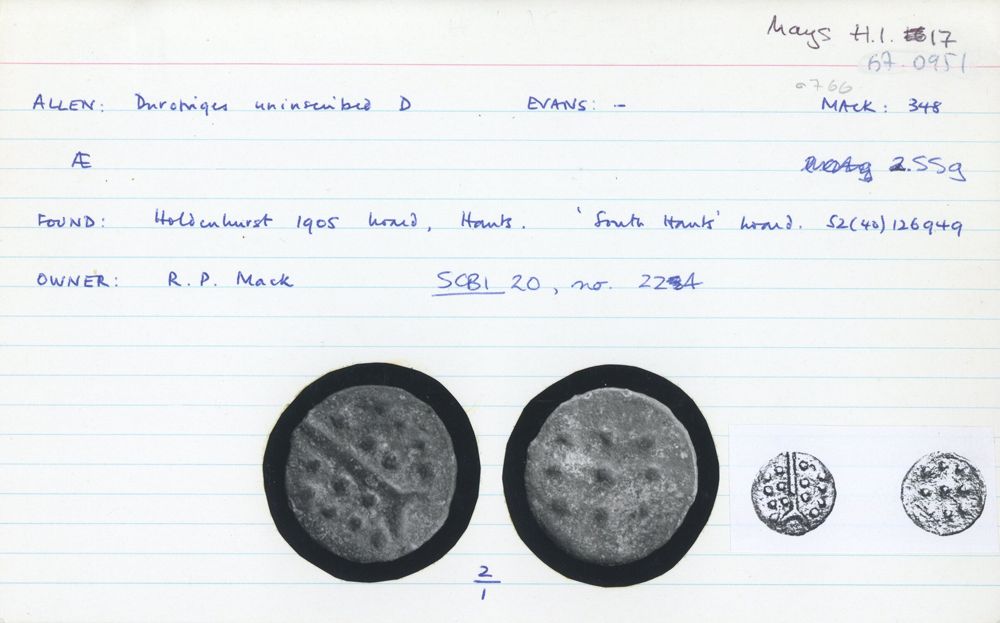 Mays H.1. 17
67.0951
0766
ALLEN: Durotriges uninscribed D EVANS: – MACK: 348
Æ 2.55g
FOUND: Holdenhurst 1905 hoard, Hants. 'South Hants' hoard. SZ(40)126949
OWNER: R. P. Mack SCBI 20, no.
2
1